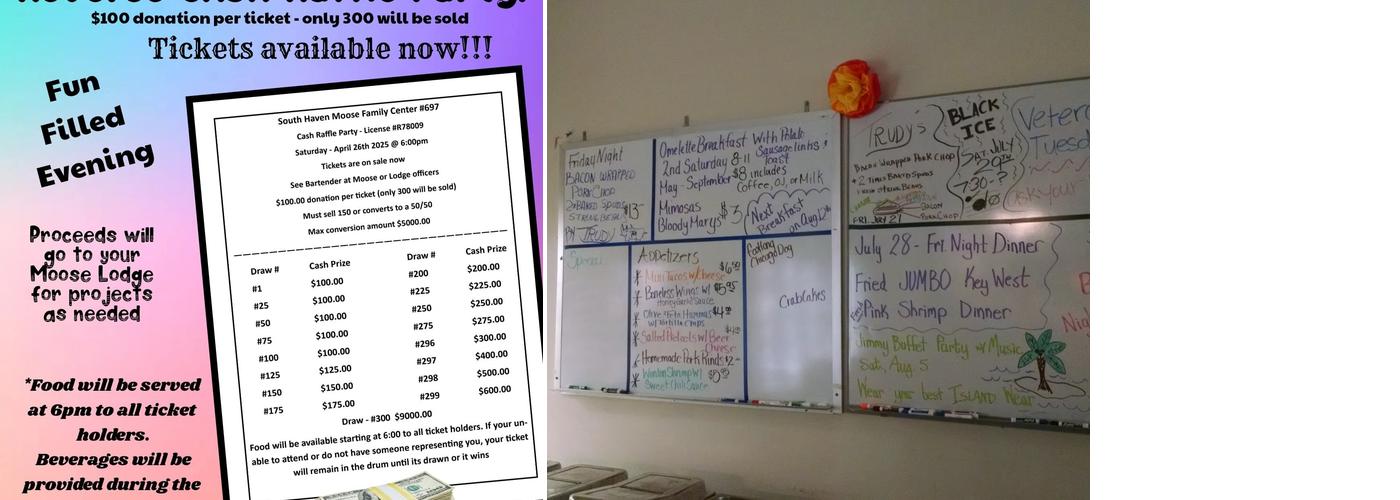 $100 donation per ticket - only 300 will be sold
Tickets available now!!!
Fun
Filled
Evening
Proceeds will
go to your
Moose Lodge
for projects
as needed
*Food will be served
at 6pm to all ticket
holders.
Beverages will be
provided during the
South Haven Moose Family Center #697
Cash Raffle Party - License #R78009
Saturday - April 26th 2025 @ 6:00pm
Tickets are on sale now
See Bartender at Moose or Lodge officers
$100.00 donation per ticket (only 300 will be sold)
Must sell 150 or converts to a 50/50
Max conversion amount $5000.00
Draw # Cash Prize Draw # Cash Prize
#1 $100.00 #200 $200.00
#25 $100.00 #225 $225.00
#50 $100.00 #250 $250.00
#75 $100.00 #275 $275.00
#100 $100.00 #296 $300.00
#125 $125.00 #297 $400.00
#150 $150.00 #298 $500.00
#175 $175.00 #299 $600.00
Draw - #300 $9000.00
Food will be available starting at 6:00 to all ticket holders. If your un-
able to attend or do not have someone representing you, your ticket
will remain in the drum until its drawn or it wins
Friday Night
BACON WRAPPED
PORK CHOP
2x BAKED SPUDS
STRING BEANS
$13
BY TRUDY
Omelette Breakfast With Potato
Sausage links,
2nd Saturday 8-11 Toast
May - September $8 includes
Coffee, OJ, or Milk
Mimosas
Bloody Marys $3
Next
Breakfast
on Aug 12th
Special
Appetizers
Mini Tacos w/ Cheese $6
Boneless Wings w/ $5.95
Honey Garlic Sauce
Olive Feta Hummus $4
w/ Tortilla Chips
Salted Pretzels w/ Beer
Cheese
Homemade Pork Rinds $2-
Wonton Shrimp w/
Sweet Chili Sauce
Footlong
Chicago Dog
Crab Cakes
TRUDY'S
BACON WRAPPED PORK CHOP
2 TIMES BAKED SPUDS
FRESH STRING BEANS
BACON
PORK CHOP
FRI. JULY 21
BLACK
ICE
SAT. JULY
29TH
7:30-?
Vetera
Tuesd
Ask your
July 28 - Fri. Night Dinner
Fried JUMBO Key West
Pink Shrimp Dinner
Jimmy Buffet Party w/ Music
Sat. Aug. 5
Wear your best ISLAND Wear
Nig